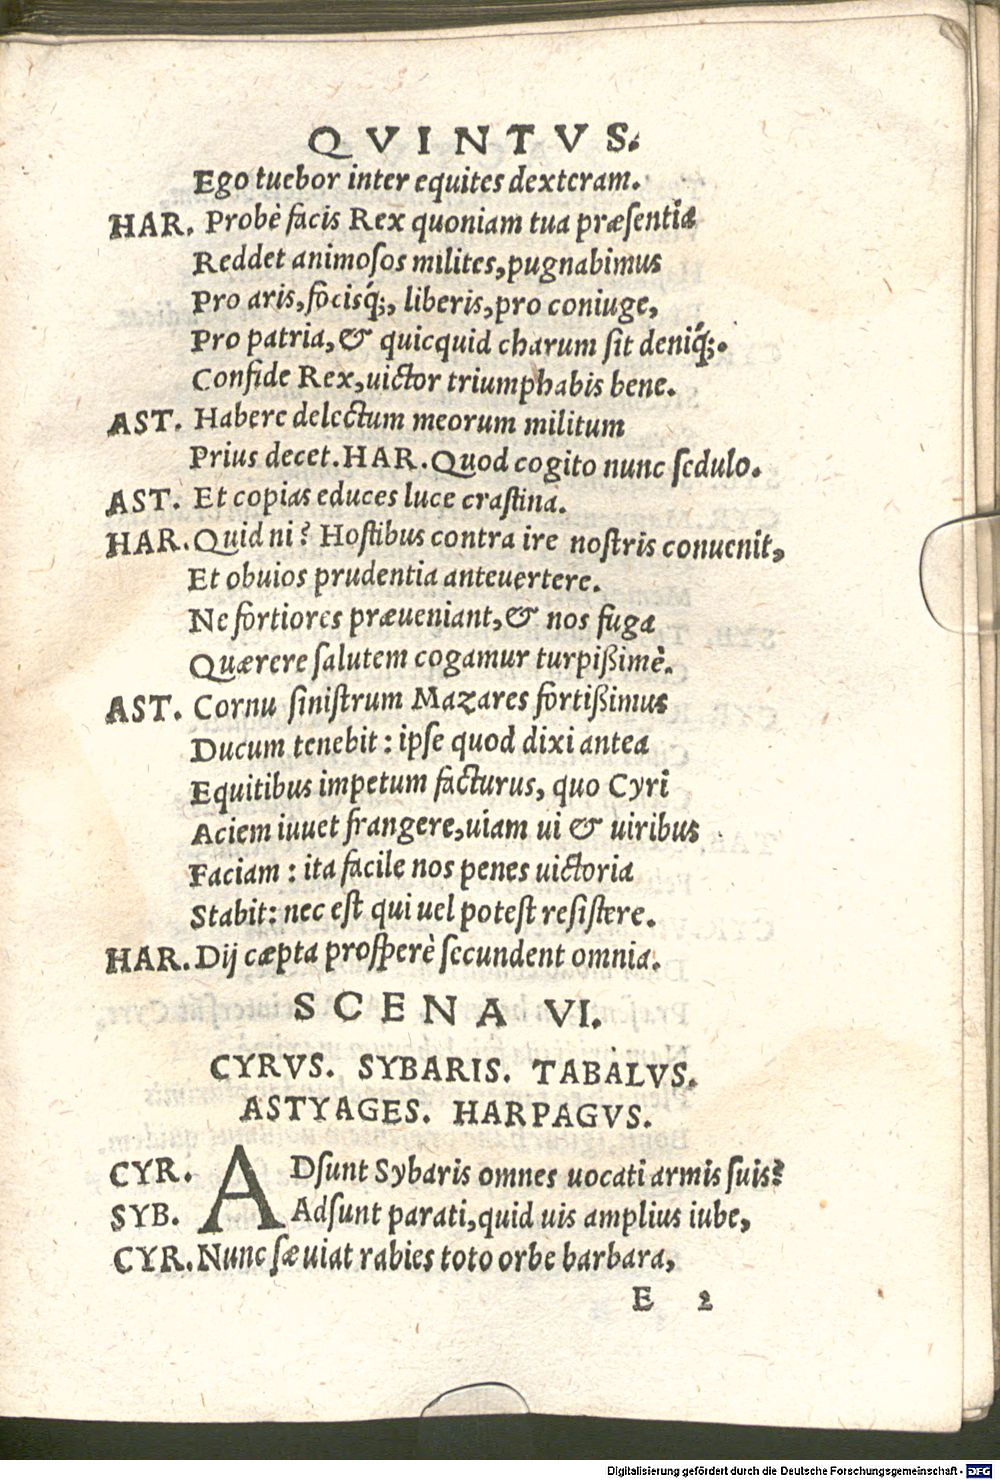 QVINTVS.
Ego tuebor inter equites dexteram.
HAR. Probè facis Rex quoniam tua præſentia
Reddet animoſos milites, pugnabimus
Pro aris, focisq́;, liberis, pro coniuge,
Pro patria, & quicquid charum ſit deniq́;.
Confide Rex, uictor triumphabis bene.
AST. Habere delectum meorum militum
Prius decet. HAR. Quod cogito nunc ſedulo.
AST. Et copias educes luce craſtina.
HAR. Quid ni? Hoſtibus contra ire noſtris conuenit,
Et obuios prudentia anteuertere.
Ne fortiores præueniant, & nos fuga
Quærere ſalutem cogamur turpißimè.
AST. Cornu ſiniſtrum Mazares fortißimus
Ducum tenebit: ipſe quod dixi antea
Equitibus impetum facturus, quo Cyri
Aciem iuuet frangere, uiam ui & uiribus
Faciam: ita facile nos penes uictoria
Stabit: nec eſt qui uel poteſt reſiſtere.
HAR. Dij cæpta proſperè ſecundent omnia.
SCENA VI.
CYRVS. SYBARIS. TABALVS.
ASTYAGES. HARPAGVS.
CYR. ADſunt Sybaris omnes uocati armis ſuis?
SYB. Adſunt parati, quid uis amplius iube,
CYR. Nunc ſæuiat rabies toto orbe barbara,
E 2
Digitalisierung gefördert durch die Deutsche Forschungsgemeinschaft - DFG